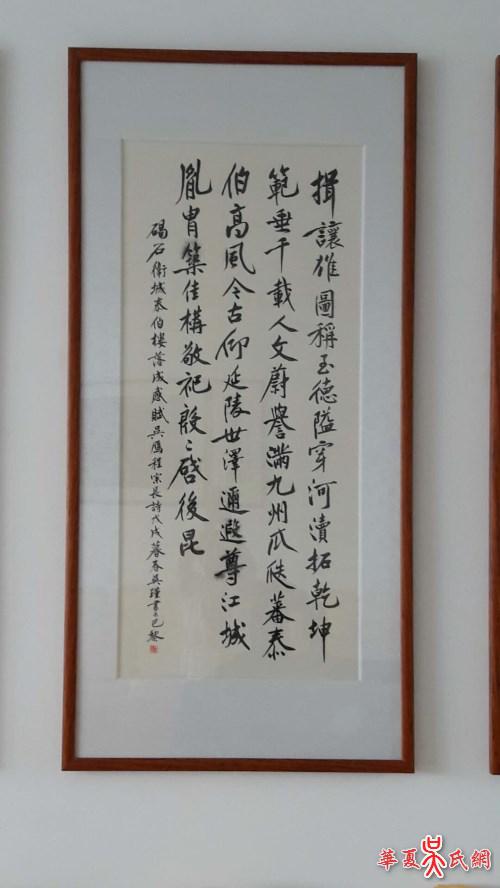 揖讓雄圖稱至德隘穿河瀆拓乾坤
範垂千載人文蔚譽滿九州瓜瓞蕃泰
伯高風今古仰延陵世澤邇遐尊江城
胤胄築佳構敬祀殷〻啓後昆
碣石衛城泰伯樓落成感賦吳鷹程宗長詩戊戌暮春吳瑾書
華夏吳氏網